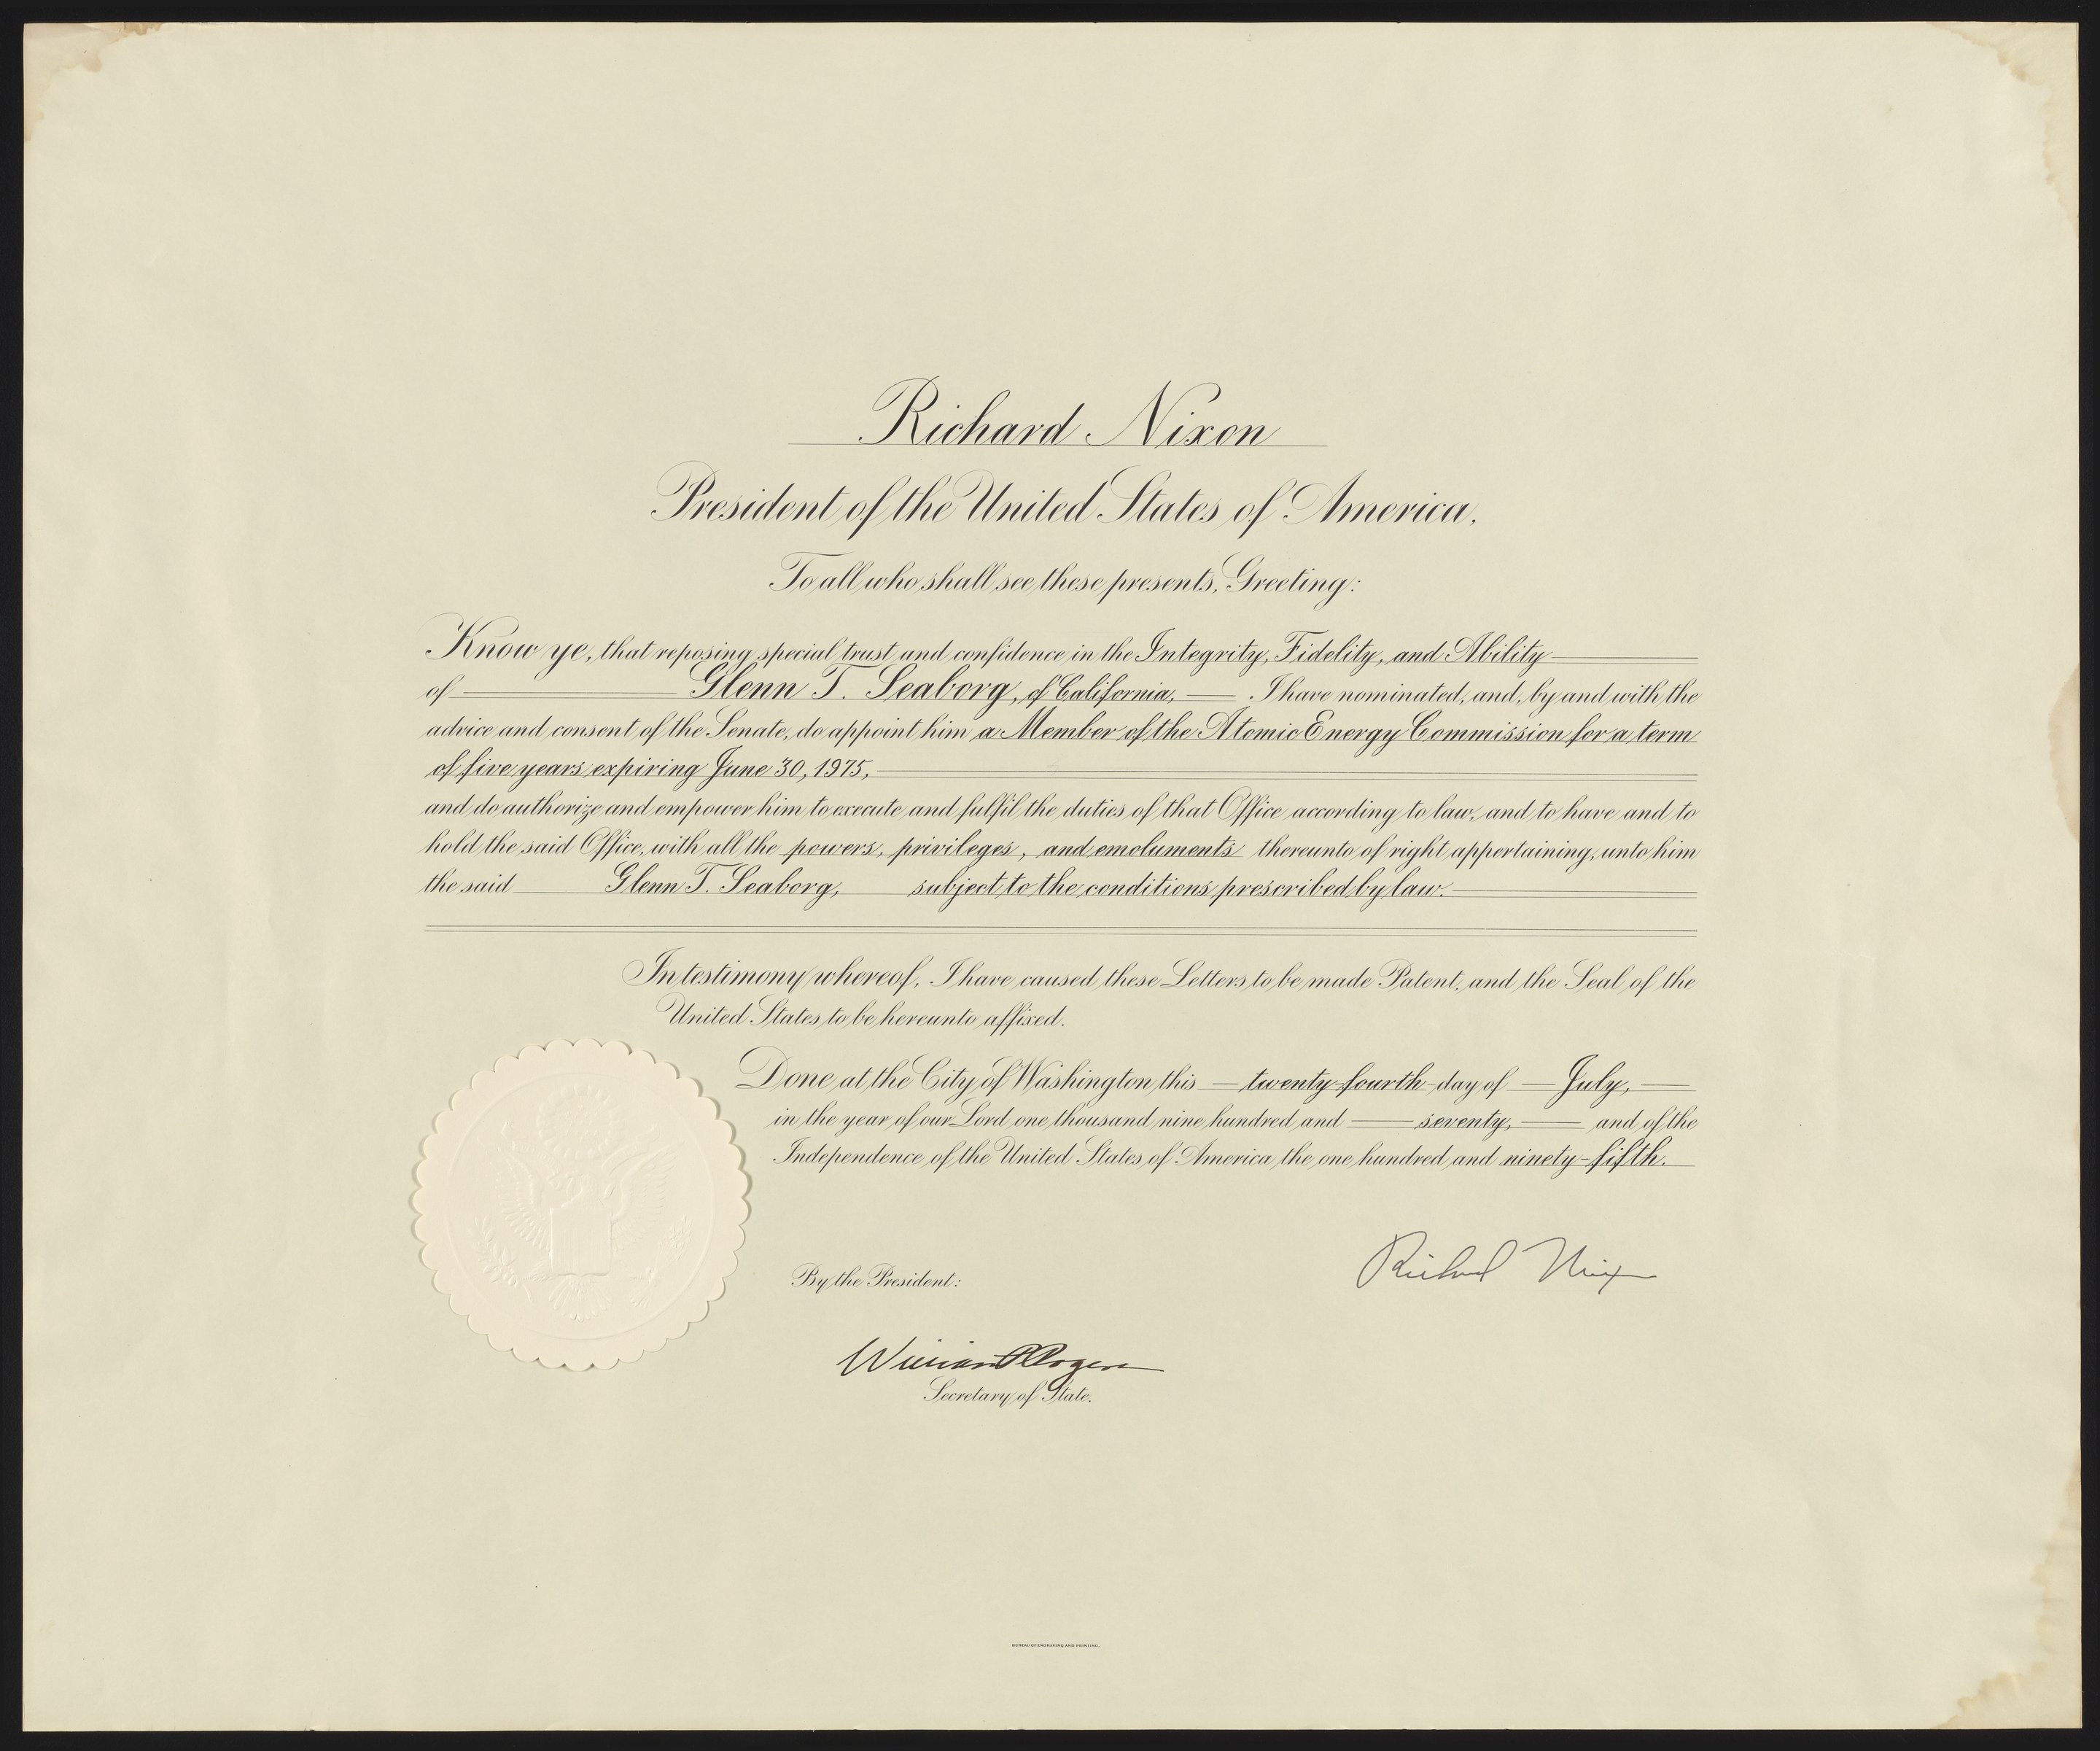 Richard Nixon
President of the United States of America,
To all who shall see these presents, Greeting:
Know ye, that reposing special trust and confidence in the Integrity, Fidelity, and Ability
of Glenn T. Seaborg, of California, I have nominated, and, by and with the
advice and consent of the Senate, do appoint him a Member of the Atomic Energy Commission for a term
of five years expiring June 30, 1975,
and do authorize and empower him to execute and fulfil the duties of that Office according to law, and to have and to
hold the said Office, with all the powers, privileges, and emoluments thereunto of right appertaining, unto him
the said Glenn T. Seaborg, subject to the conditions prescribed by law.
In testimony whereof, I have caused these Letters to be made Patent, and the Seal of the
United States to be hereunto affixed.
Done at the City of Washington this twenty-fourth day of July,
in the year of our Lord one thousand nine hundred and seventy, and of the
Independence of the United States of America the one hundred and ninety-fifth.
Richard Nixon
By the President:
William P. Rogers
Secretary of State.
BUREAU OF ENGRAVING AND PRINTING.